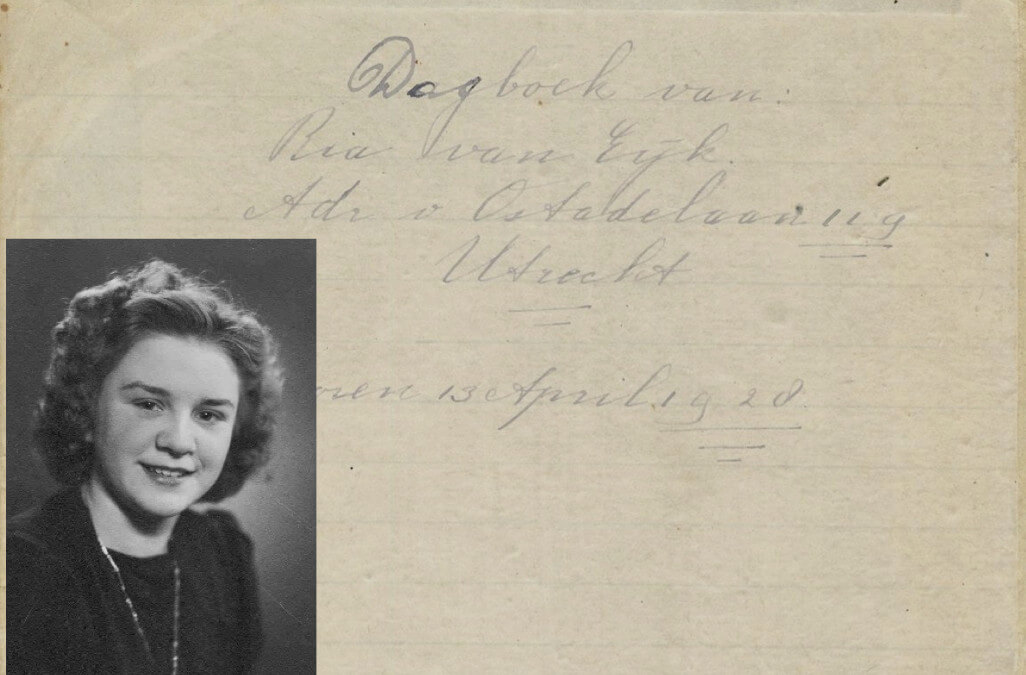 Dagboek van:
Ria van Eijk.
Adr v Ostadelaan 119
Utrecht
oren 13 April 1928.